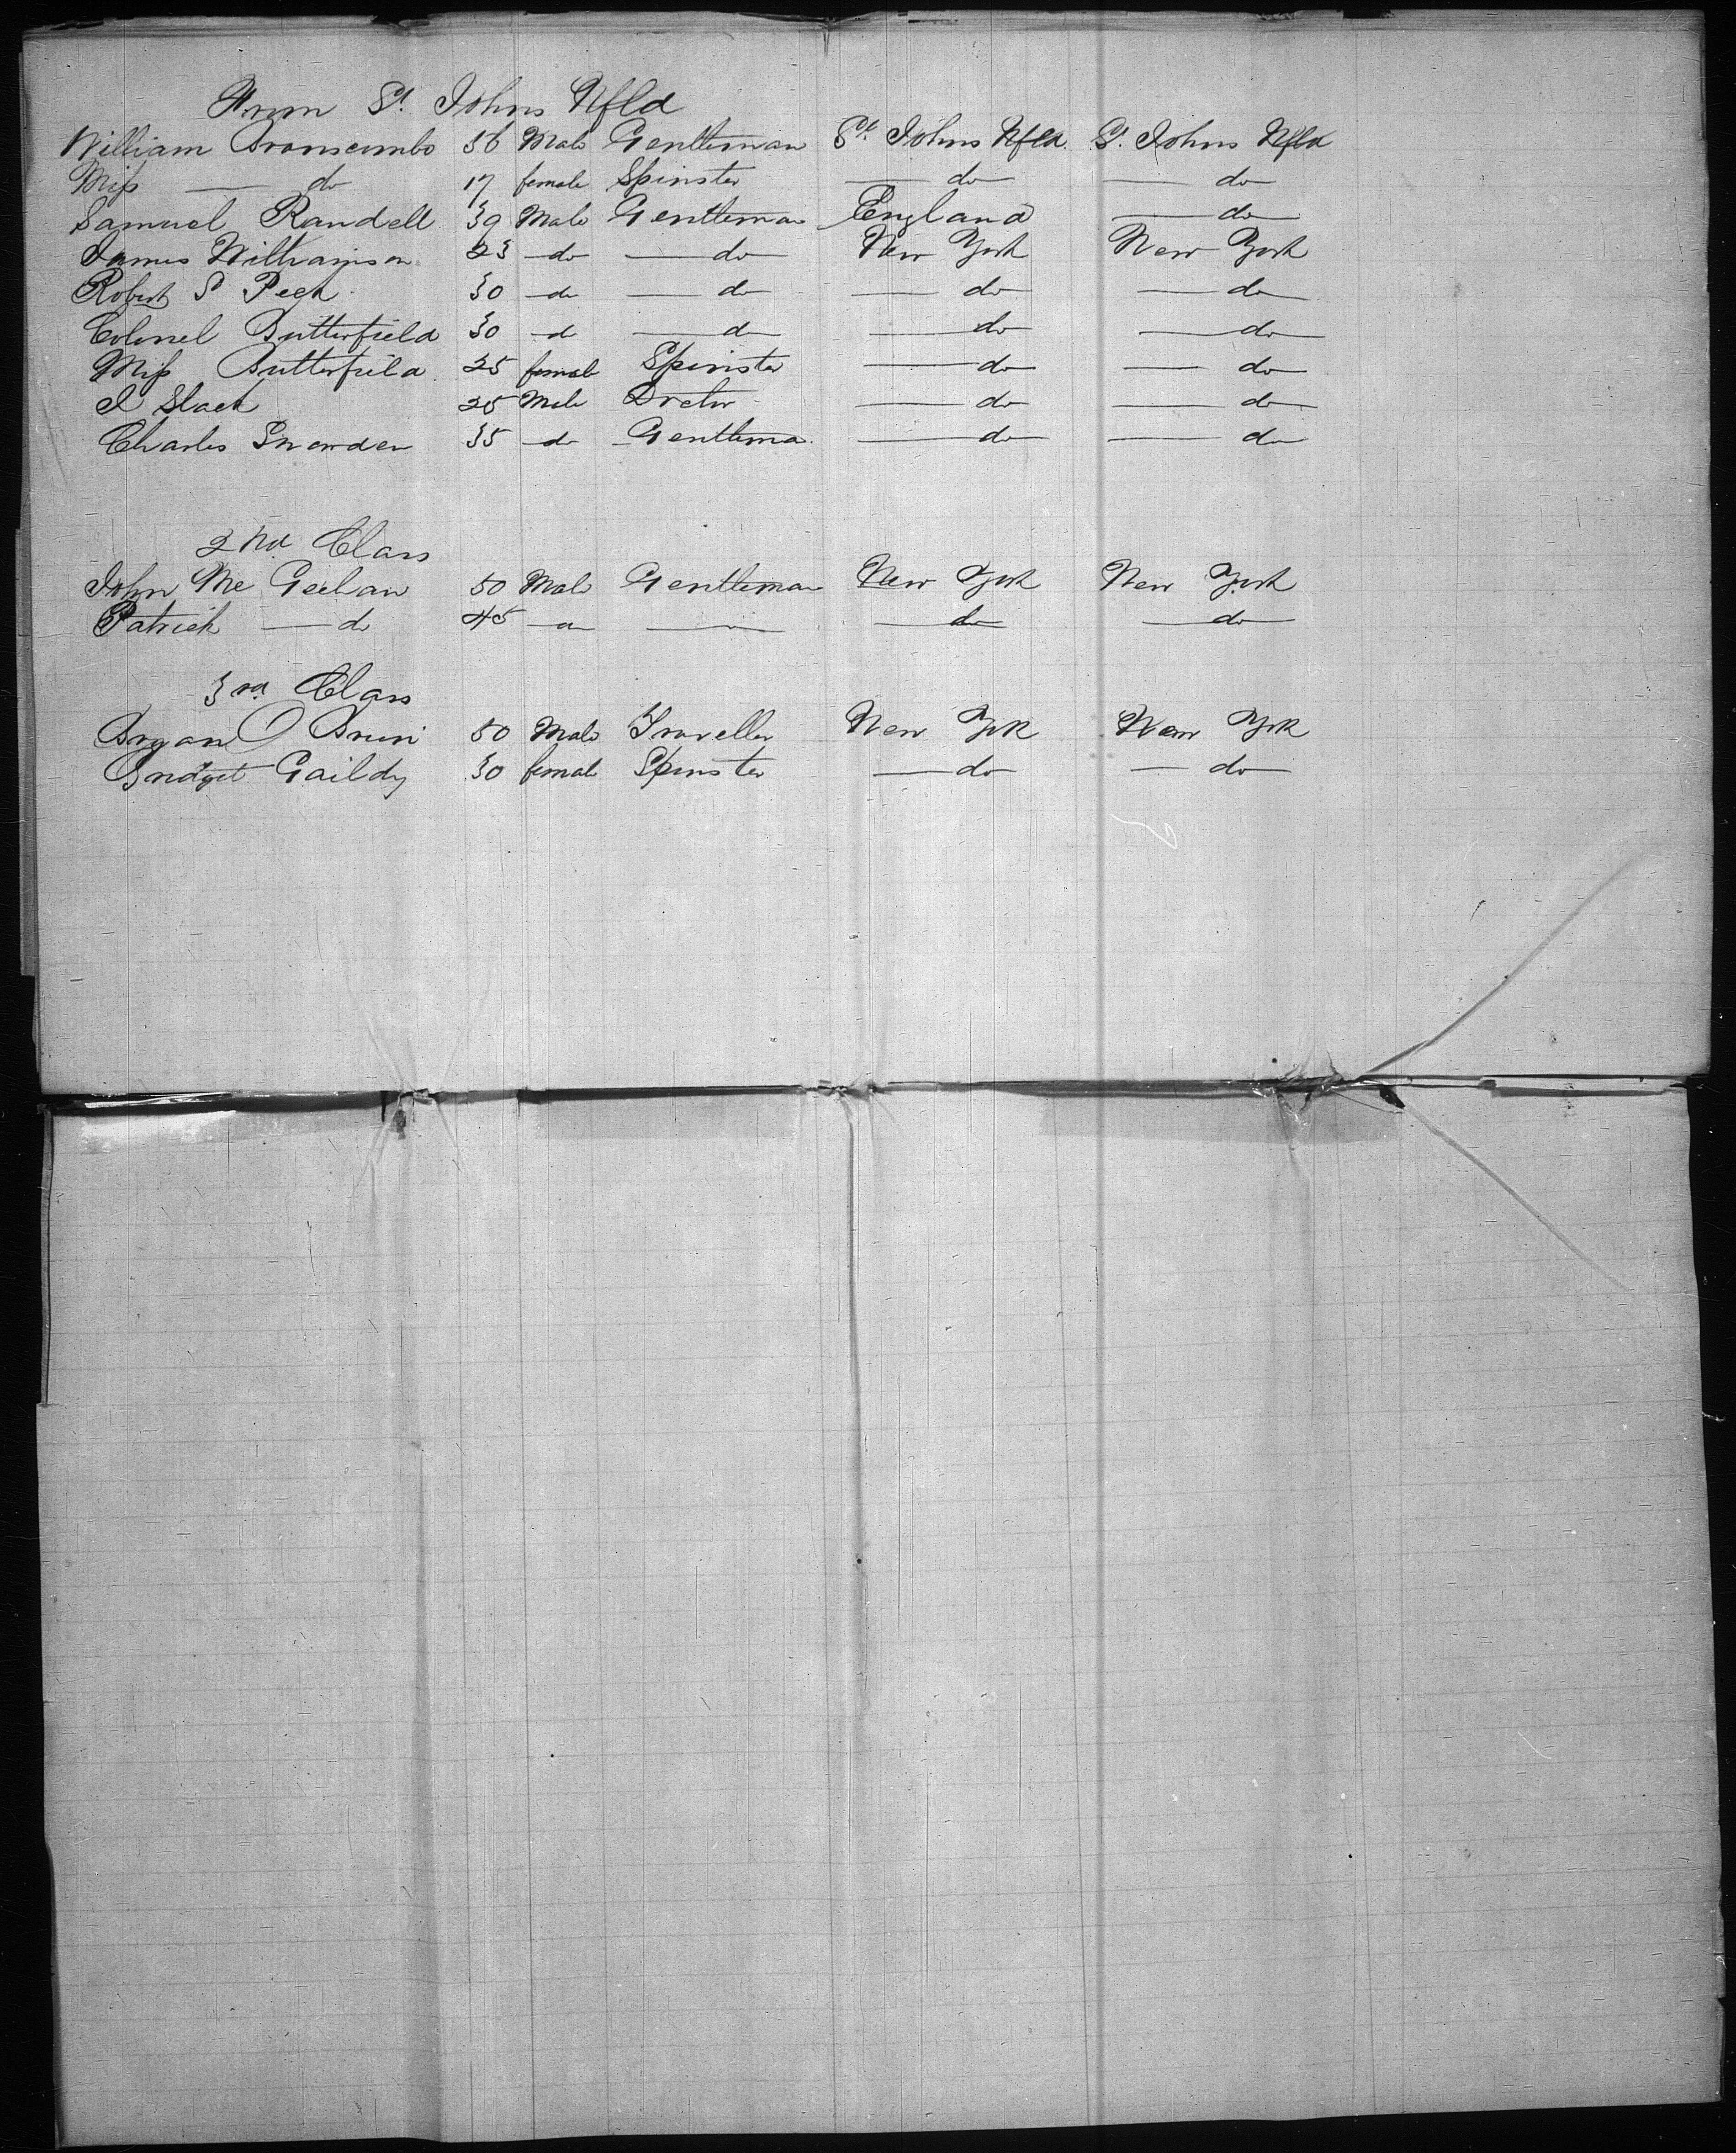 From St. Johns Nfld
William Branscombe 56 Male Gentleman St. Johns Nfld. St. Johns Nfld
Miss — do 17 female Spinster — do — — do —
Samuel Randell 39 Male Gentleman England — do —
James Williamson 23 — do — do — New York New York
Robert S Peck 30 — do — do — — do — — do —
Colonel Butterfield 30 — do — do — — do — — do —
Miss Butterfield 25 female Spinster — do — — do —
I Slack 25 Male Doctor — do — — do —
Charles Snowden 35 — do Gentleman — do — — do —
2nd Class
John Mc Geehan 50 Male Gentleman New York New York
Patrick — do 45 — do — — do — — do —
3rd Class
Bryan O Brien 50 Male Traveller New York New York
Bridget 30 female Spinster — do — — do —